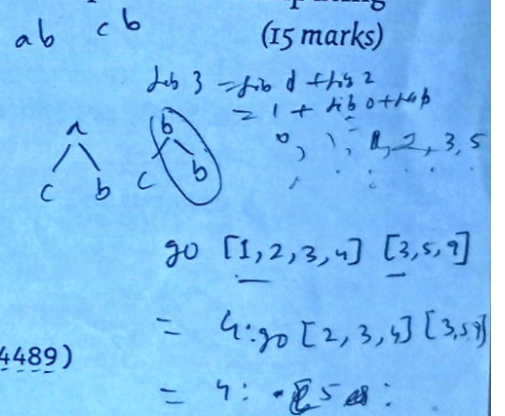 ab cb
(15 marks)
fib 3 = fib 1 + fib 2
= 1 + fib 0 +
0, 1, 1, 2, 3, 5
a b
c b c b
go [1,2,3,4] [3,5,9]
= 4:go [2,3,4] [3,5,9]
4489)
= 4: 5 :